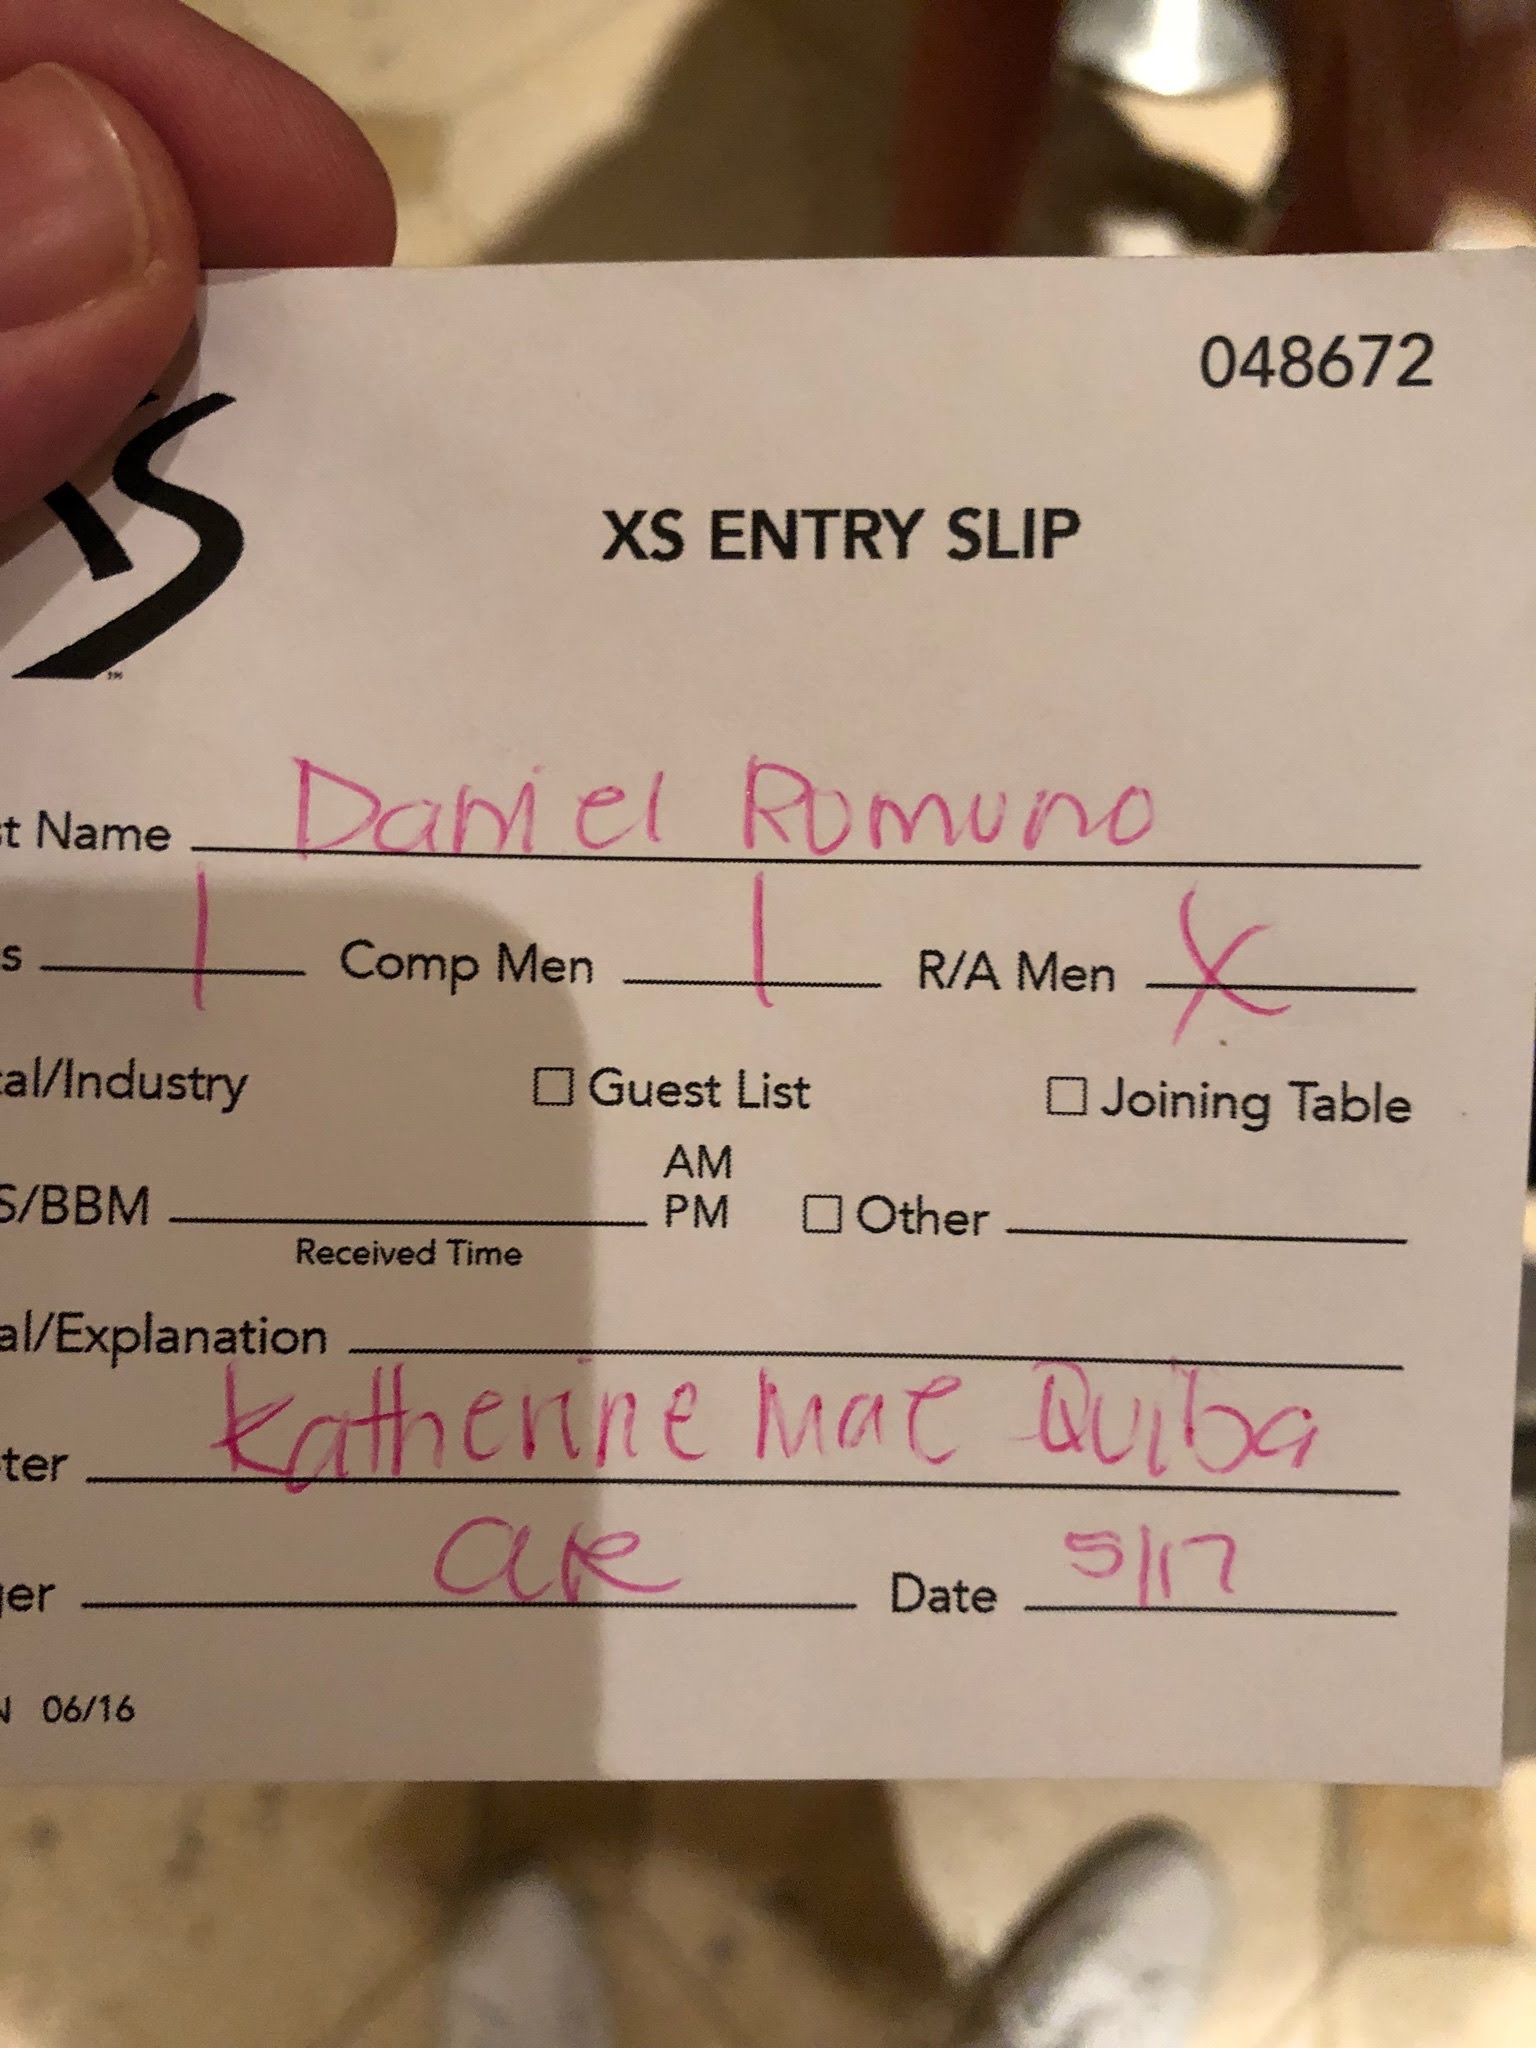 048672
XS
XS ENTRY SLIP
st Name Daniel Romuno
s 1 Comp Men 1 R/A Men X
cal/Industry ☐ Guest List ☐ Joining Table
S/BBM AM PM ☐ Other
Received Time
al/Explanation
ter Katherine Mae Quiba
ger Date 5/17
N 06/16